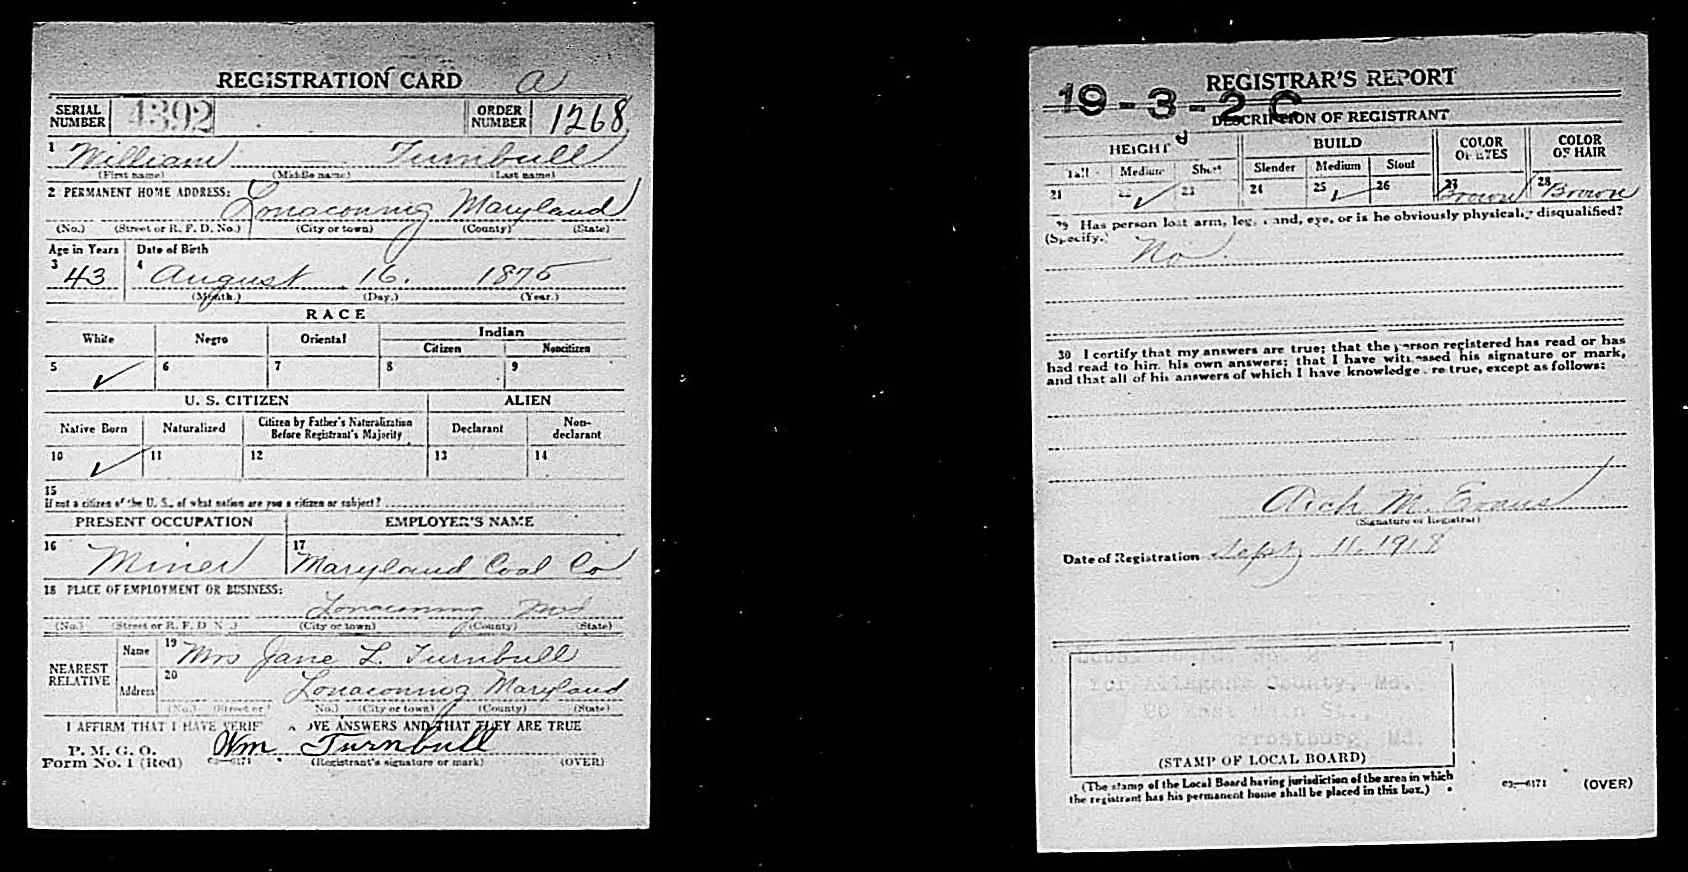 REGISTRATION CARD a
SERIAL NUMBER 4392 ORDER NUMBER 1268
1 William — Turnbull
(First name) (Middle name) (Last name)
2 PERMANENT HOME ADDRESS:
Lonaconing Maryland
(No.) (Street or R. F. D. No.) (City or town) (County) (State)
Age in Years Date of Birth
3 43 4 August 16. 1875
(Month.) (Day.) (Year.)
RACE
White Negro Oriental Indian
Citizen Noncitizen
5 ✓ 6 7 8 9
U. S. CITIZEN ALIEN
Native Born Naturalized Citizen by Father's Naturalization Before Registrant's Majority Declarant Non-declarant
10 ✓ 11 12 13 14
15
If not a citizen of the U. S., of what nation are you a citizen or subject?
PRESENT OCCUPATION EMPLOYER'S NAME
16 Miner 17 Maryland Coal Co
18 PLACE OF EMPLOYMENT OR BUSINESS:
Lonaconing Md
(No.) (Street or R. F. D. No.) (City or town) (County) (State)
NEAREST RELATIVE Name 19 Mrs Jane L. Turnbull
Address 20 Lonaconing Maryland
(No.) (Street or No.) (City or town) (County) (State)
I AFFIRM THAT I HAVE VERIF OVE ANSWERS AND THAT THEY ARE TRUE
P. M. G. O.
Form No. 1 (Red) 03—6171 Wm Turnbull
(Registrant's signature or mark) (OVER)
REGISTRAR'S REPORT
19-3-2 C
DESCRIPTION OF REGISTRANT
HEIGHT BUILD COLOR OF EYES COLOR OF HAIR
Tall Medium Short Slender Medium Stout
21 22 ✓ 23 24 25 ✓ 26 27 Brown 28 Brown
29 Has person lost arm, leg, hand, eye, or is he obviously physically disqualified?
(Specify.) No.
30 I certify that my answers are true; that the person registered has read or has
had read to him his own answers; that I have witnessed his signature or mark,
and that all of his answers of which I have knowledge are true, except as follows:
Arch M. Evans
(Signature of Registrar)
Date of Registration Sept 11. 1918
for Allegany County, Md.
Frostburg, Md.
(STAMP OF LOCAL BOARD)
(The stamp of the Local Board having jurisdiction of the area in which
the registrant has his permanent home shall be placed in this box.)
03—6171 (OVER)